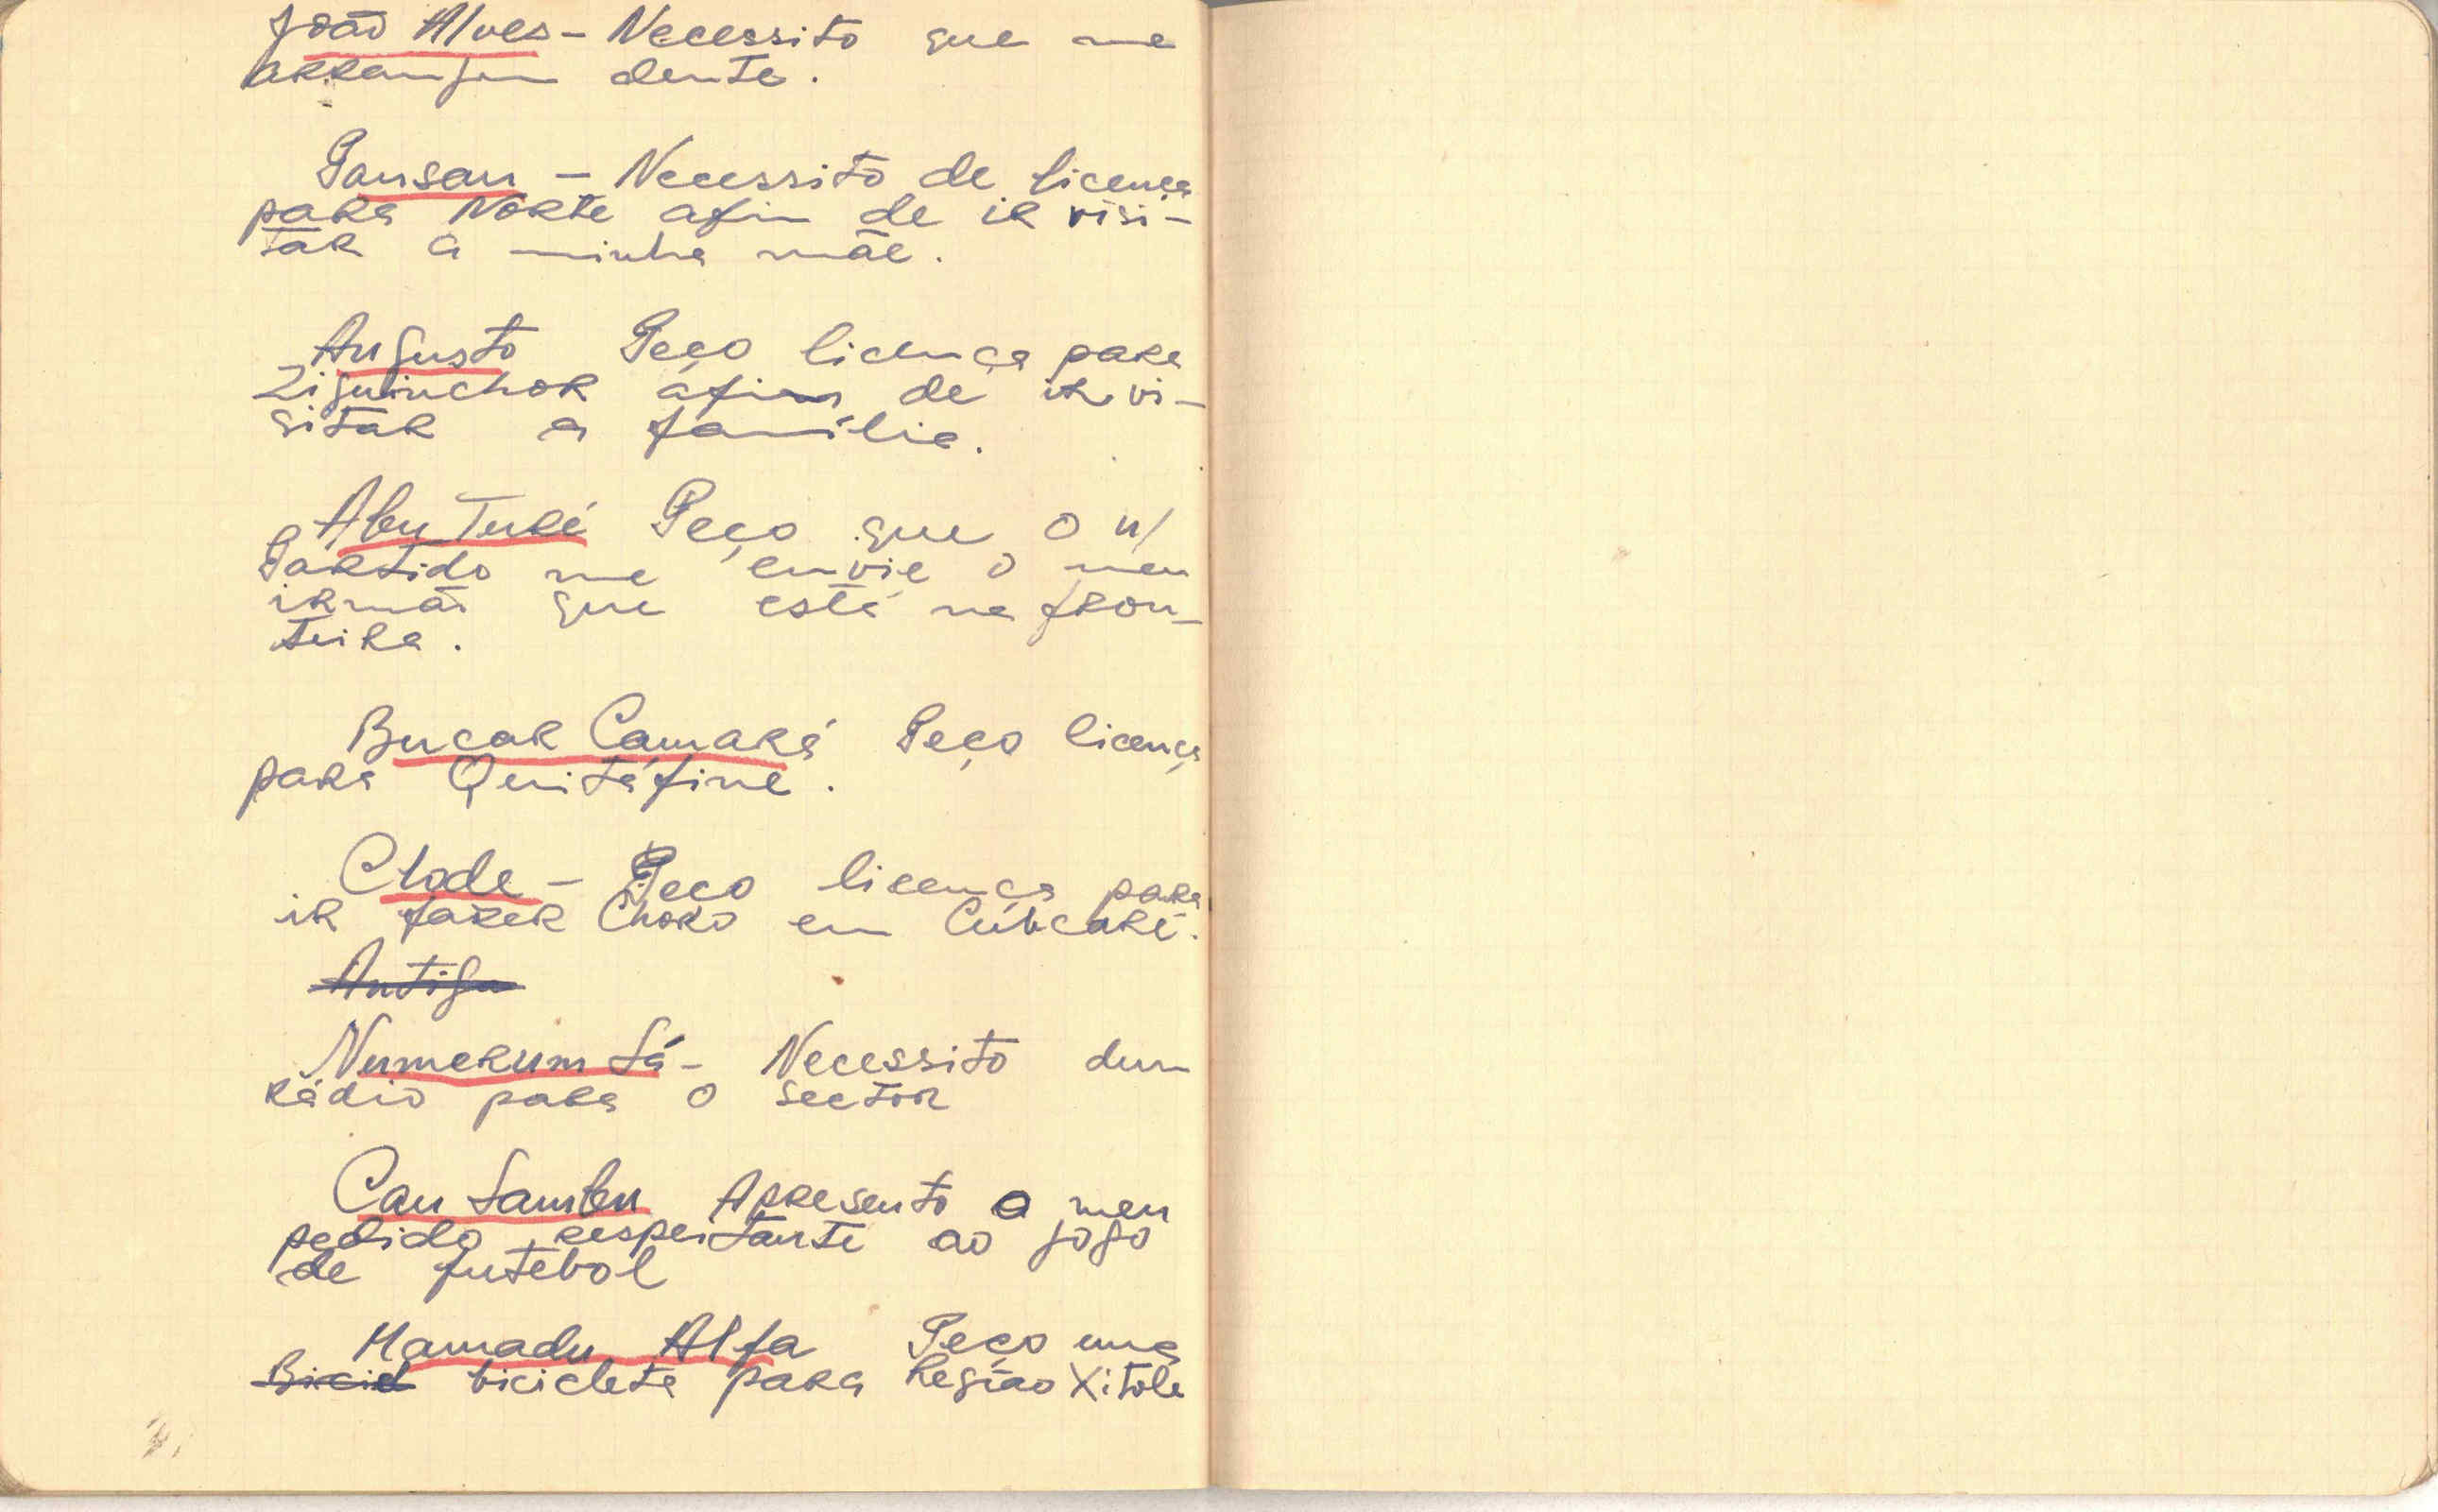 João Alves - Necessito que me
arranjem dente.
Pansau - Necessito de licença
para Norte afim de ir visi-
tar a minha mãe.
Augusto Peço licença para
Ziguinchor áfim de ir vi-
sitar a família.
Abu Turé Peço que o n/
Partido me envie o meu
irmão que está na fron-
teira.
Bucar Camará Peço licença
para Quitáfine.
Clode - Peço licença para
ir fazer Choro em Cúbcaré.
Antigu
Numerum Sá - Necessito dum
rádio para o sector
Cau Sambu Apresento o meu
pedido respeitante ao jogo
de futebol
Mamadu Alfa Peço uma
Bicicl bicicleta para Região Xitole